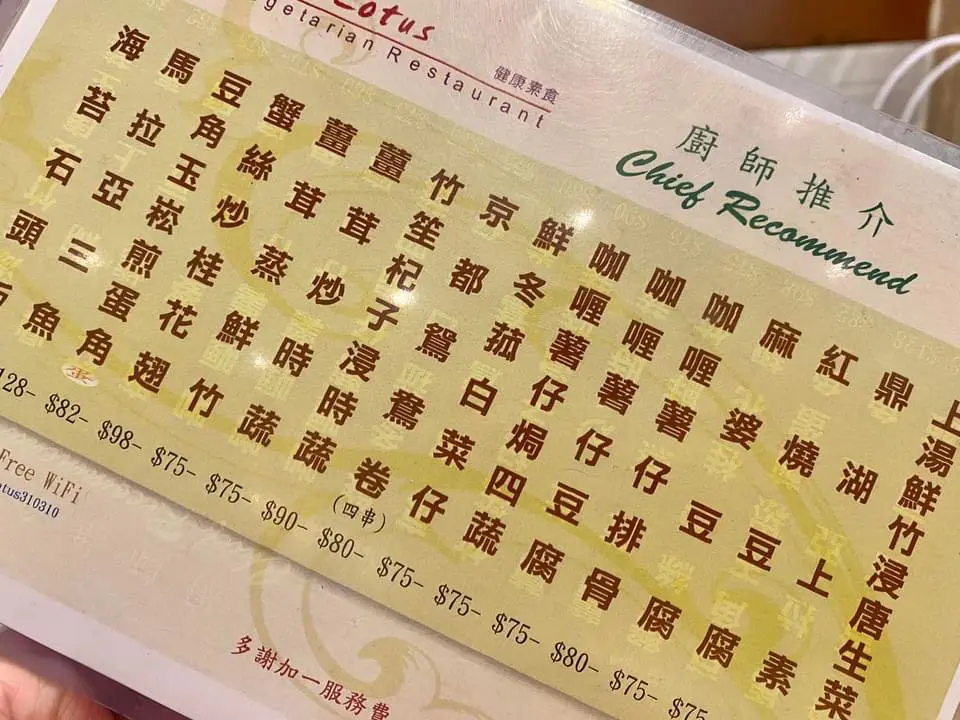 Lotus
getarian Restaurant
健康素食
廚師推介
Chief Recommend
上湯鮮竹浸唐生菜
鼎湖上素
紅燒豆腐
麻婆豆腐
咖喱薯仔排骨
咖喱薯仔豆腐
咖喱薯仔焗四蔬
鮮冬菰白菜仔
京都鴛鴦卷(四串)
竹笙杞子浸時蔬
薑茸炒時蔬
薑茸蒸鮮竹
蟹絲炒桂花翅
豆角玉崧煎蛋角
馬拉亞三魚
海苔石頭
128- $82- $98- $75- $75- $90- $80- $75- $75- $75- $80- $75- $75
Free WiFi
otus310310
多謝加一服務費